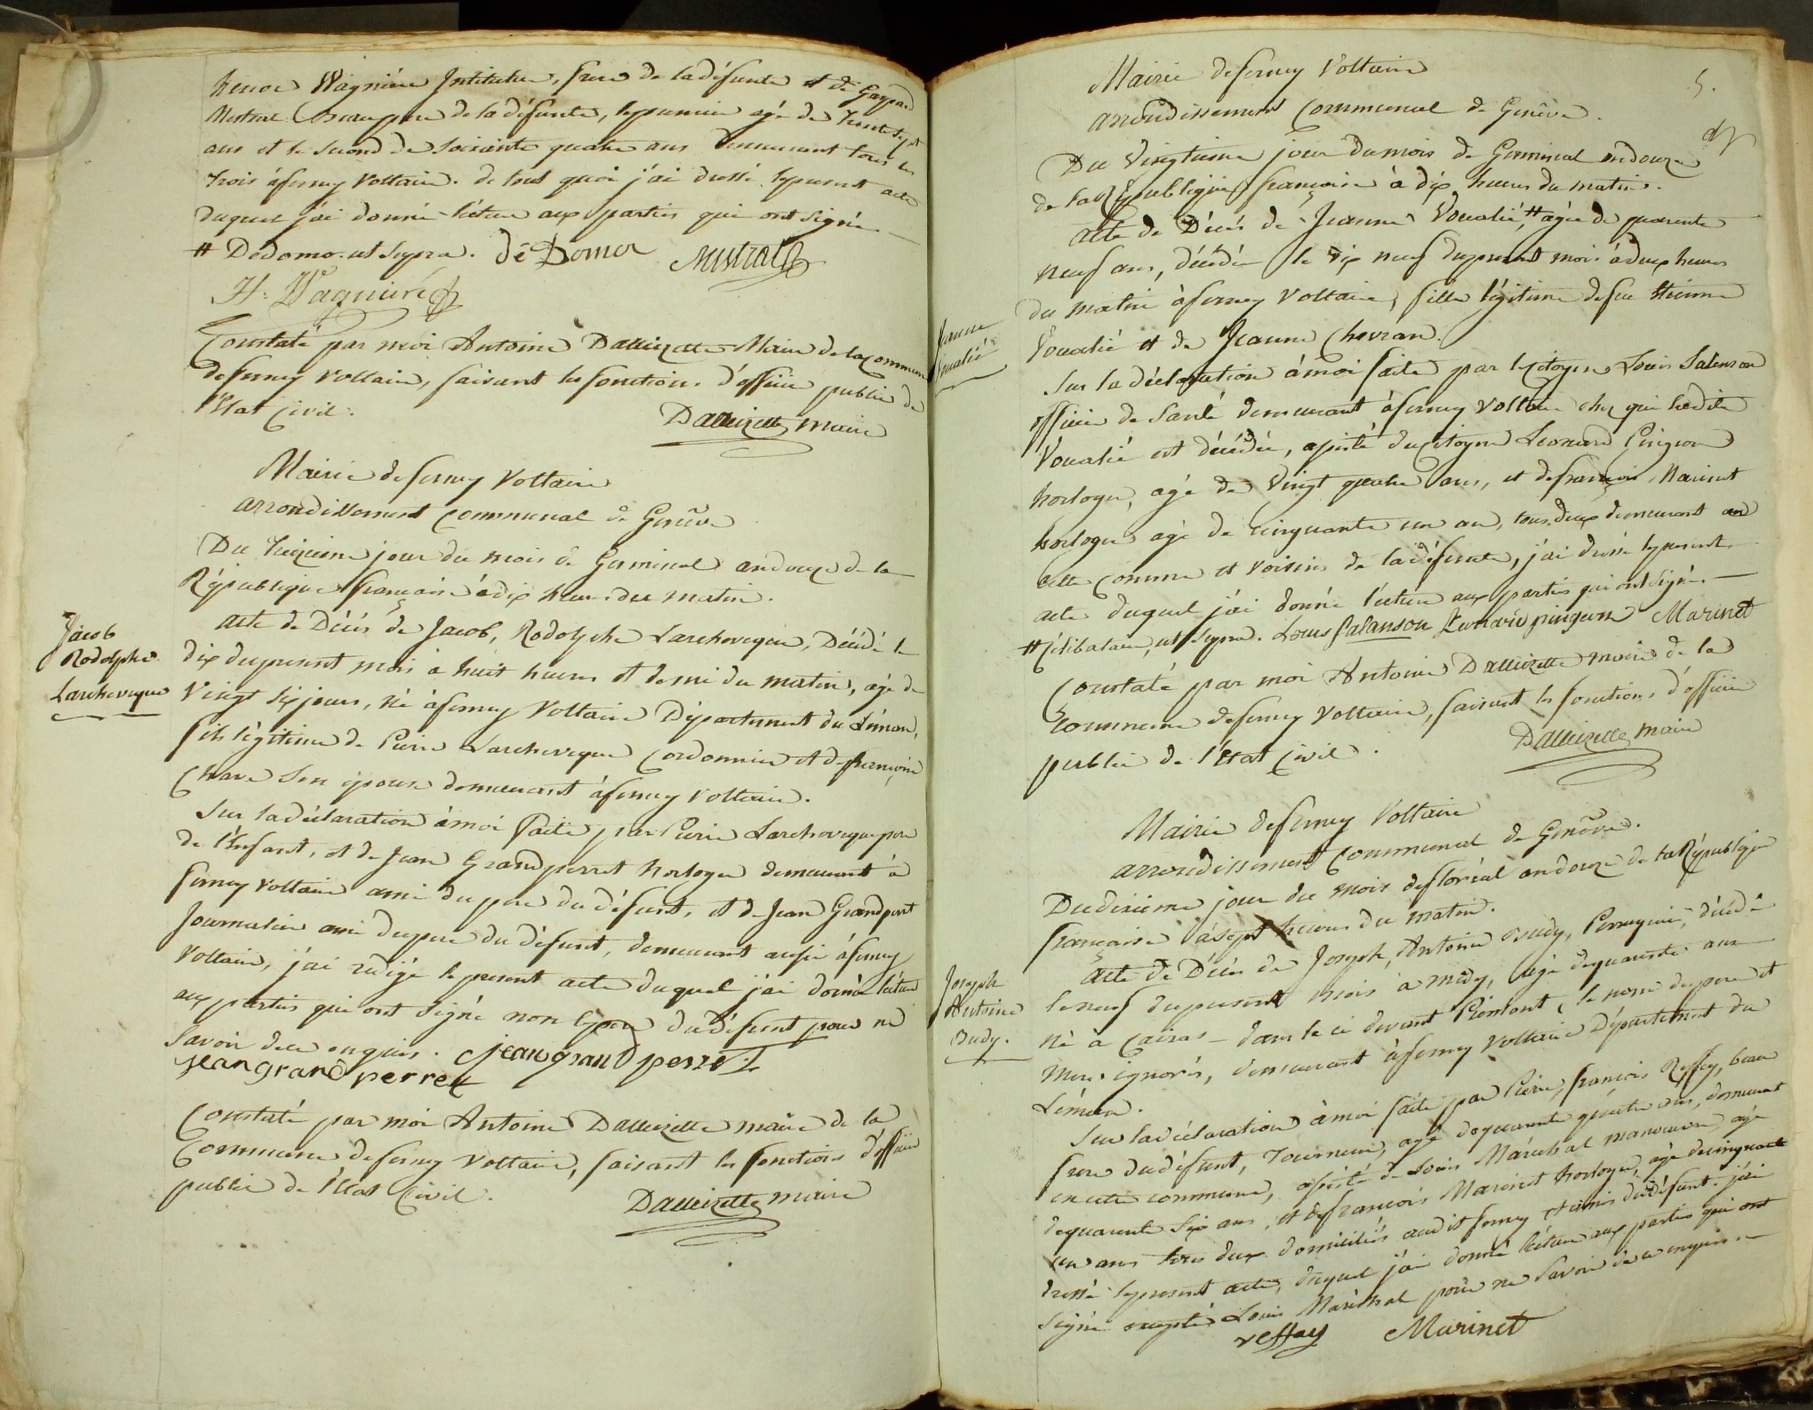 Wagnière Instituteur, frere de la défunte et de Gaspard
Mestral Beau pere de la défunte, le premier agé de trente sept
ans et le second de soixante quatre ans demeurant tous les
trois à ferney Voltaire. de tout quoi j'ai dressé le present acte
duquel j'ai donné lecture aux parties qui ont signé.
# Dedomo. ut supra. de Domo Mistral
H: Wagnière
Constaté par moi Antoine Dalleizette Maire de la commune
de ferney Voltaire, faisant les fonctions d'officier public de
l'Etat Civil.
Dalleizette maire
Mairie de ferney Voltaire
arrondissement communal de Genève
Du jour du mois de Germinal an douze de la
République française à dix heures du matin.
Jacob
Rodolphe
Larcheveque
acte de Décès de Jacob, Rodolphe Larcheveque, Décédé le
dix du present mois à huit heures et demi du matin, agé de
Vingt six jours, né à ferney Voltaire Département du Léman,
fils légitime de Pierre Larcheveque Cordonnier et de françoise
Chave son épouse demeurant à ferney Voltaire.
Sur la déclaration à moi faite par Pierre Larcheveque pere
de l'Enfant, et de Jean Grandperret horloger demeurant à
ferney Voltaire ami du pere du défunt, et de Jean Grandperret
Journalier ami du pere du défunt, demeurant aussi à ferney
Voltaire, j'ai redigé le present acte duquel j'ai donné lecture
aux parties qui ont signé non le pere du défunt pour ne
savoir de ce enquis. Jean grand perret
jean grand perret
Constaté par moi Antoine Dalleizette maire de la
Commune de ferney Voltaire, faisant les fonctions d'officier
public de l'Etat Civil.
Dalleizette maire
5.
Mairie de ferney Voltaire
arrondissement Communal de Genève.
Du Vingtieme jour du mois de Germinal an douze
de la République française à dix heures du matin.
Jeanne
Voualié
acte de Décès de Jeanne Voualié, # agée de quarente
neuf ans, décédée le dix neuf du present mois à deux heures
du matin à ferney Voltaire, fille légitime de feu Etienne
Voualié et de Jeanne Chevran.
Sur la déclaration à moi faite par le citoyen Louis Salanson
officier de Santé demeurant à ferney Voltaire chez qui ladite
Voualié est décédée, assisté du citoyen Leonard Pingeon
horloger, agé de Vingt quatre ans, et de françois Marinet
horloger agé de cinquante un an, tous deux demeurant en
cette commune et voisins de la défunte, j'ai dressé le present
acte duquel j'ai donné lecture aux parties qui ont signé.
# Célibataire, ut supra. Louis Salanson Leonard pingeon Marinet
Constaté par moi Antoine Dalleizette maire de la
Commune de ferney Voltaire, faisant les fonctions d'officier
public de l'Etat Civil.
Dalleizette maire
Mairie de ferney Voltaire
arrondissement Communal de Genève.
Du dixieme jour du mois de floréal an douze de la République
française à sept heures du matin.
Joseph
Antoine
Budy.
acte de Décès de Joseph, Antoine Budy, Perruquier, décédé
le neuf du present mois à midy, agé de quarante ans
né à Cairas dans le ci devant Piémont, le nom du pere et
mere ignorés, demeurant à ferney Voltaire Département du
Léman.
Sur la déclaration à moi faite par Pierre, françois Reffay, beau
frere du défunt, Tourneur, agé de quarante quatre ans, demeurant
en cette commune, assisté de Louis Maréchal manoeuvre agé
de quarente six ans, et de françois Marinet horloger, agé de cinquante
un ans tous deux domiciliés audit ferney et amis du défunt. j'ai
dressé le present acte, duquel j'ai donné lecture aux parties qui ont
signé excepté Louis Maréchal pour ne savoir de ce enquis.
reffay Marinet